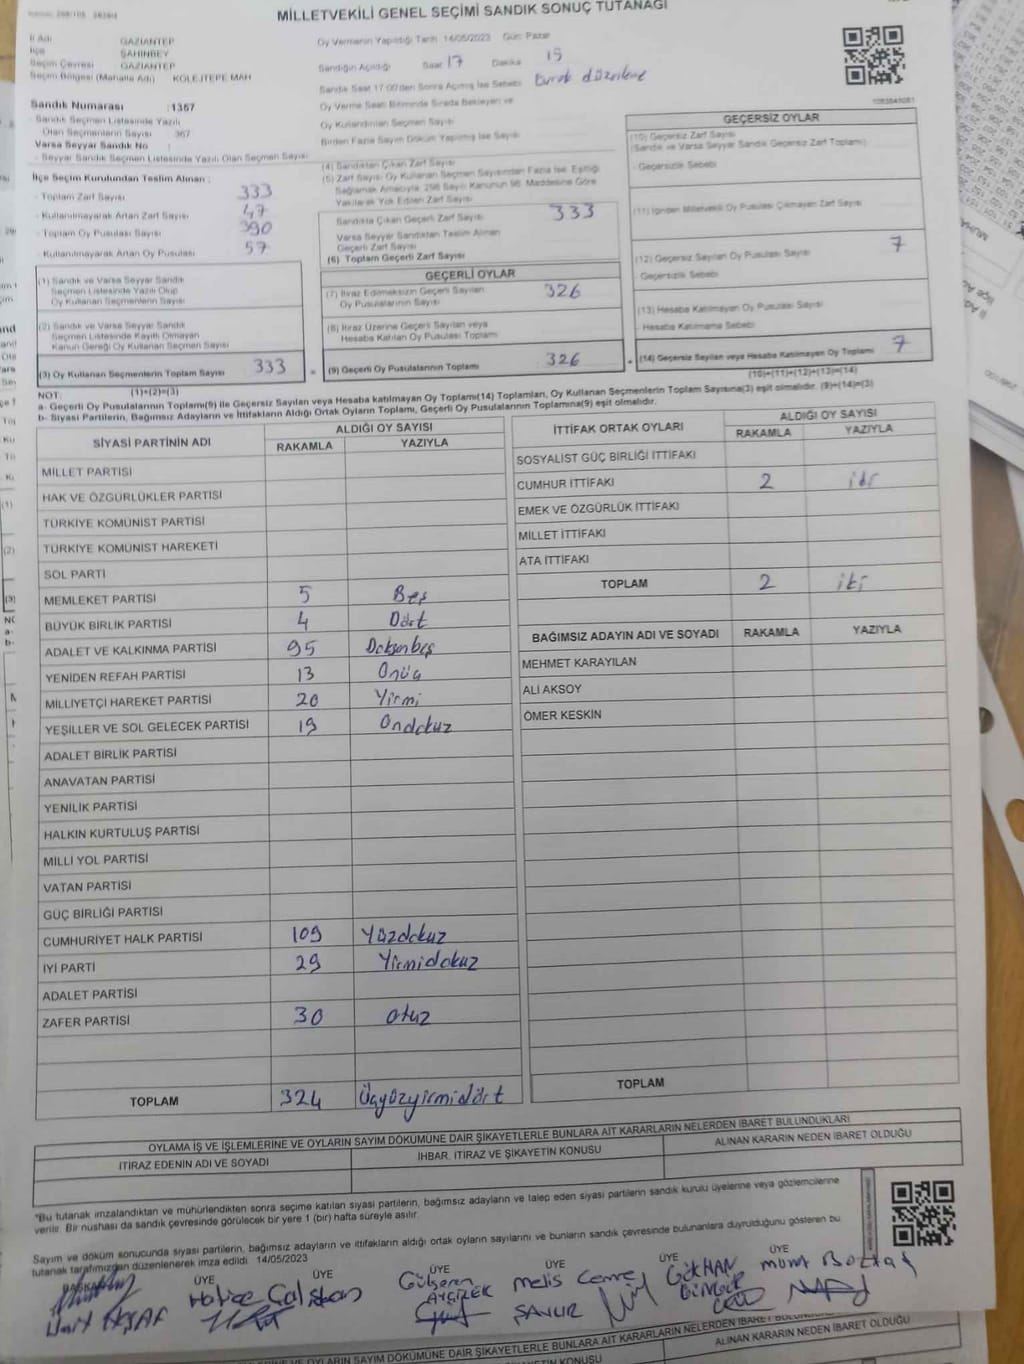 MİLLETVEKİLİ GENEL SEÇİMİ SANDIK SONUÇ TUTANAĞI
İl Adı GAZİANTEP
İlçe ŞAHİNBEY
Seçim Çevresi GAZİANTEP
Seçim Bölgesi (Mahalle Adı) KOLEJTEPE MAH
Oy Vermenin Yapıldığı Tarih 14/05/2023 Gün: Pazar
Sandığın Açıldığı Saat 17 Dakika 15
Sandık Saat 17:00'den Sonra Açılmış İse Sebebi
Oy Verme Saati Bitiminde Sırada Bekleyen ve
Oy Kullandırılan Seçmen Sayısı
Birden Fazla Sayım Döküm Yapılmış İse Sayısı
Sandık Numarası :1367
- Sandık Seçmen Listesinde Yazılı
Olan Seçmenlerin Sayısı 367
Varsa Seyyar Sandık No :
- Seyyar Sandık Seçmen Listesinde Yazılı Olan Seçmen Sayısı
İlçe Seçim Kurulundan Teslim Alınan :
- Toplam Zarf Sayısı 333
- Kullanılmayarak Artan Zarf Sayısı 47
- Toplam Oy Pusulası Sayısı 390
- Kullanılmayarak Artan Oy Pusulası 57
(1) Sandık ve Varsa Seyyar Sandık
Seçmen Listesinde Yazılı Olup
Oy Kullanan Seçmenlerin Sayısı
(2) Sandık ve Varsa Seyyar Sandık
Seçmen Listesinde Kayıtlı Olmayan
Kanun Gereği Oy Kullanan Seçmen Sayısı
(3) Oy Kullanan Seçmenlerin Toplam Sayısı 333
(1)+(2)=(3)
(4) Sandıktan Çıkan Zarf Sayısı
(5) Zarf Sayısı Oy Kullanan Seçmen Sayısından Fazla İse, Eşitliği
Sağlamak Amacıyla 298 Sayılı Kanunun 98. Maddesine Göre
Yakılarak Yok Edilen Zarf Sayısı
Sandıkta Çıkan Geçerli Zarf Sayısı 333
Varsa Seyyar Sandıktan Teslim Alınan
Geçerli Zarf Sayısı
(6) Toplam Geçerli Zarf Sayısı
GEÇERLİ OYLAR
(7) İtiraz Edilmeksizin Geçerli Sayılan
Oy Pusulalarının Sayısı 326
(8) İtiraz Üzerine Geçerli Sayılan veya
Hesaba Katılan Oy Pusulası Toplamı
(9) Geçerli Oy Pusulalarının Toplamı 326
GEÇERSİZ OYLAR
(10) Geçersiz Zarf Sayısı
(Sandık ve Varsa Seyyar Sandık Geçersiz Zarf Toplamı)
- Geçersizlik Sebebi
(11) İçinden Milletvekili Oy Pusulası Çıkmayan Zarf Sayısı
(12) Geçersiz Sayılan Oy Pusulası Sayısı 7
- Geçersizlik Sebebi
(13) Hesaba Katılmayan Oy Pusulası Sayısı
- Hesaba Katılmama Sebebi
(14) Geçersiz Sayılan veya Hesaba Katılmayan Oy Toplamı 7
(10)+(11)+(12)+(13)=(14)
NOT:
a- Geçerli Oy Pusulalarının Toplamı(9) ile Geçersiz Sayılan veya Hesaba katılmayan Oy Toplamı(14) Toplamları, Oy Kullanan Seçmenlerin Toplam Sayısına(3) eşit olmalıdır. (9)+(14)=(3)
b- Siyasi Partilerin, Bağımsız Adayların ve İttifakların Aldığı Ortak Oyların Toplamı, Geçerli Oy Pusulalarının Toplamına(9) eşit olmalıdır.
SİYASİ PARTİNİN ADI ALDIĞI OY SAYISI
RAKAMLA YAZIYLA
MİLLET PARTİSİ
HAK VE ÖZGÜRLÜKLER PARTİSİ
TÜRKİYE KOMÜNİST PARTİSİ
TÜRKİYE KOMÜNİST HAREKETİ
SOL PARTİ
MEMLEKET PARTİSİ 5 Beş
BÜYÜK BİRLİK PARTİSİ 4 Dört
ADALET VE KALKINMA PARTİSİ 95 Doksanbeş
YENİDEN REFAH PARTİSİ 13 Onüç
MİLLİYETÇİ HAREKET PARTİSİ 20 Yirmi
YEŞİLLER VE SOL GELECEK PARTİSİ 19 Ondokuz
ADALET BİRLİK PARTİSİ
ANAVATAN PARTİSİ
YENİLİK PARTİSİ
HALKIN KURTULUŞ PARTİSİ
MİLLİ YOL PARTİSİ
VATAN PARTİSİ
GÜÇ BİRLİĞİ PARTİSİ
CUMHURİYET HALK PARTİSİ 109 Yüzdokuz
İYİ PARTİ 29 Yirmidokuz
ADALET PARTİSİ
ZAFER PARTİSİ 30 otuz
TOPLAM 324 Üçyüzyirmidört
İTTİFAK ORTAK OYLARI ALDIĞI OY SAYISI
RAKAMLA YAZIYLA
SOSYALİST GÜÇ BİRLİĞİ İTTİFAKI
CUMHUR İTTİFAKI 2 iki
EMEK VE ÖZGÜRLÜK İTTİFAKI
MİLLET İTTİFAKI
ATA İTTİFAKI
TOPLAM 2 iki
BAĞIMSIZ ADAYIN ADI VE SOYADI RAKAMLA YAZIYLA
MEHMET KARAYILAN
ALİ AKSOY
ÖMER KESKİN
TOPLAM
OYLAMA İŞ VE İŞLEMLERİNE VE OYLARIN SAYIM DÖKÜMÜNE DAİR ŞİKAYETLERLE BUNLARA AİT KARARLARIN NELERDEN İBARET BULUNDUKLARI
İTİRAZ EDENİN ADI VE SOYADI İHBAR, İTİRAZ VE ŞİKAYETİN KONUSU ALINAN KARARIN NEDEN İBARET OLDUĞU
"Bu tutanak imzalandıktan ve mühürlendikten sonra seçime katılan siyasi partilerin, bağımsız adayların ve talep eden siyasi partilerin sandık kurulu üyelerine veya gözlemcilerine
verilir. Bir nüshası da sandık çevresinde görülecek bir yere 1 (bir) hafta süreyle asılır.
Sayım ve döküm sonucunda siyasi partilerin, bağımsız adayların ve ittifakların aldığı ortak oyların sayılarını ve bunların sandık çevresinde bulunanlara duyrulduğunu gösteren bu
tutanak tarafımızdan düzenlenerek imza edildi. 14/05/2023
BAŞKAN ÜYE ÜYE ÜYE ÜYE ÜYE ÜYE
Hatice Çalışkan Gülseren Melis Cemre GÖKHAN Murat
OYLAMA İŞ VE İŞLEMLERİNE VE OYLARIN SAYIM DÖKÜMÜNE DAİR ŞİKAYETLERLE BUNLARA AİT KARARLARIN NELERDEN İBARET BULUNDUKLARI
ALINAN KARARIN NEDEN İBARET OLDUĞU